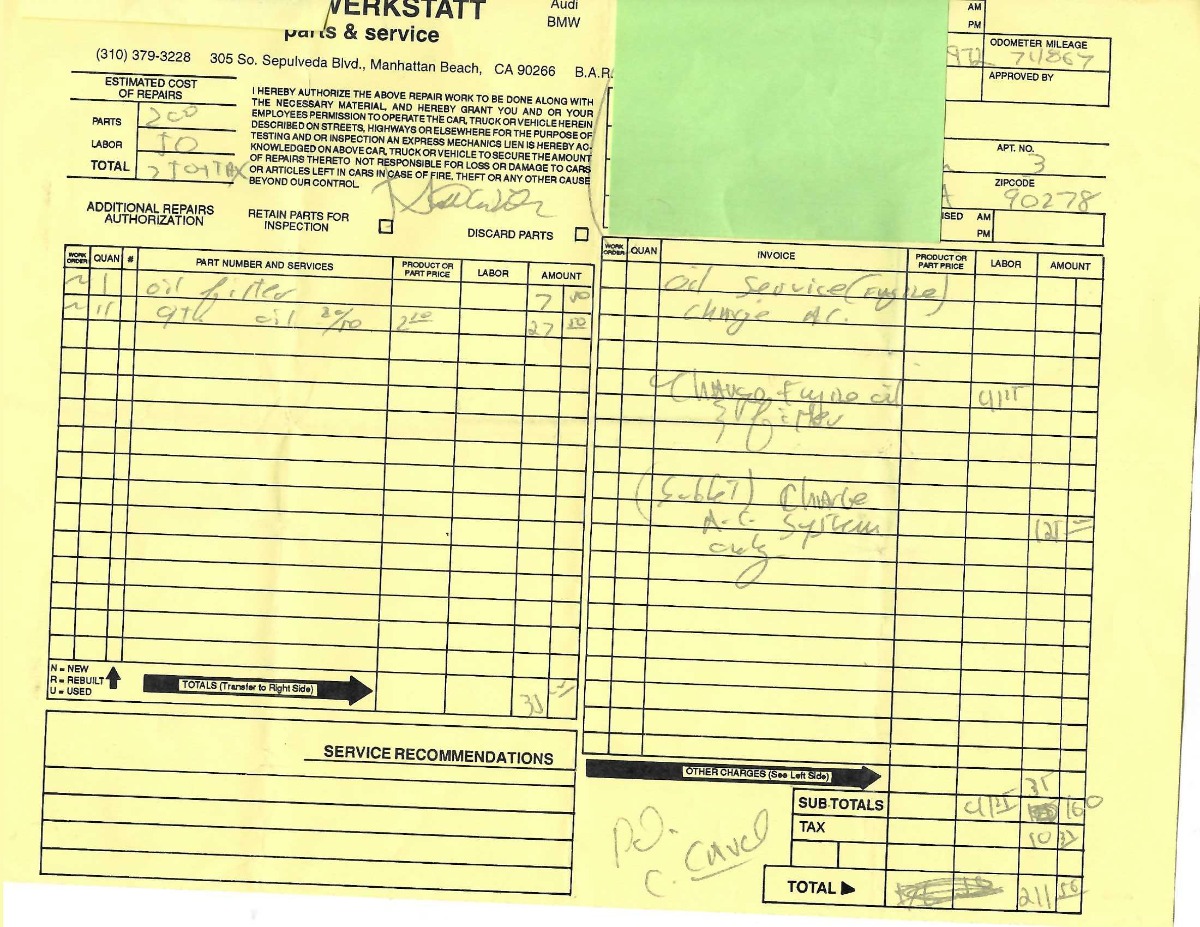 WERKSTATT
parts & service
Audi
BMW
(310) 379-3228 305 So. Sepulveda Blvd., Manhattan Beach, CA 90266 B.A.R.
AM
PM
ODOMETER MILEAGE
972 74867
APPROVED BY
ESTIMATED COST
OF REPAIRS
PARTS 200
LABOR 50
TOTAL 250+TAX
I HEREBY AUTHORIZE THE ABOVE REPAIR WORK TO BE DONE ALONG WITH
THE NECESSARY MATERIAL, AND HEREBY GRANT YOU AND OR YOUR
EMPLOYEES PERMISSION TO OPERATE THE CAR, TRUCK OR VEHICLE HEREIN
DESCRIBED ON STREETS, HIGHWAYS OR ELSEWHERE FOR THE PURPOSE OF
TESTING AND OR INSPECTION AN EXPRESS MECHANICS LIEN IS HEREBY AC-
KNOWLEDGED ON ABOVE CAR, TRUCK OR VEHICLE TO SECURE THE AMOUNT
OF REPAIRS THERETO NOT RESPONSIBLE FOR LOSS OR DAMAGE TO CARS
OR ARTICLES LEFT IN CARS IN CASE OF FIRE, THEFT OR ANY OTHER CAUSE
BEYOND OUR CONTROL.
APT. NO.
3
ZIPCODE
A 90278
ISED AM
PM
ADDITIONAL REPAIRS
AUTHORIZATION
RETAIN PARTS FOR
INSPECTION
DISCARD PARTS
WORK ORDER QUAN # PART NUMBER AND SERVICES PRODUCT OR PART PRICE LABOR AMOUNT
N 1 oil filter 7 50
N 11 qts oil 20/50 2 50 27 50
N = NEW
R = REBUILT
U = USED
TOTALS (Transfer to Right Side)
35
SERVICE RECOMMENDATIONS
WORK ORDER QUAN INVOICE PRODUCT OR PART PRICE LABOR AMOUNT
Oil Service (Engine)
Charge A.C.
Change Engine oil
& filter
(Sublet) Charge 
A.C. System
only
125
OTHER CHARGES (See Left Side)
35
SUB TOTALS 160
TAX
10 31
TOTAL
211 56
Pd.